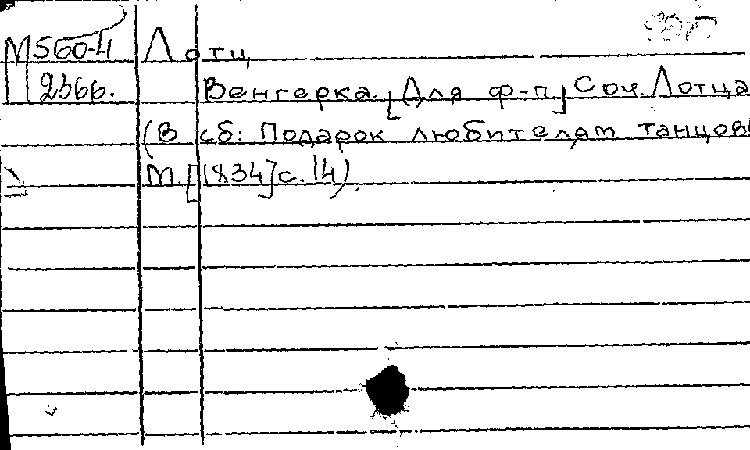 М560-4 Лотц
П236б. Венгерка. [Для ф-п] Соч. Лотца
(В сб: Подарок любителям танцов
М. [1834] с. 14).